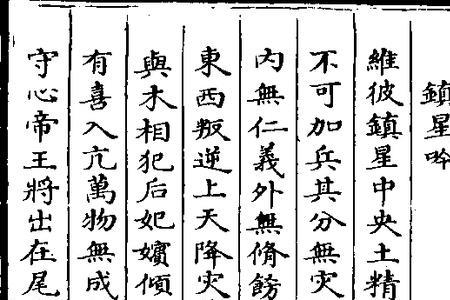 鎮星吟
維彼鎮星中央土精
不可加兵其分無灾
內無仁義外無脩飭
東西叛逆上天降灾
與木相犯后妃嬪傾
有喜入亢萬物無成
守心帝王將出在尾